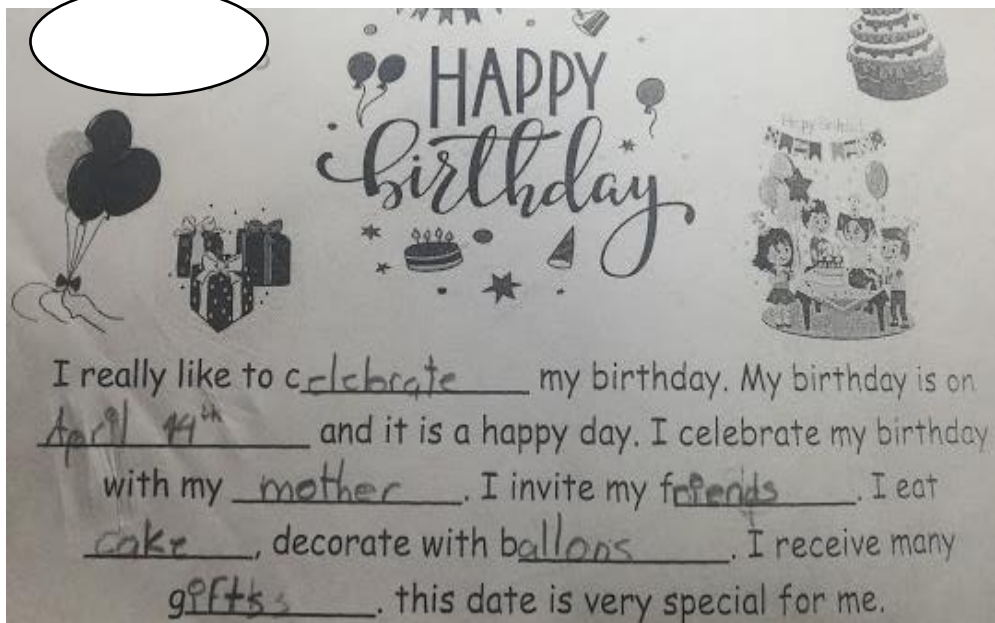 HAPPY
birthday
Happy Birthday
I really like to celebrate my birthday. My birthday is on
April 14th and it is a happy day. I celebrate my birthday
with my mother. I invite my friends. I eat
cake, decorate with ballons. I receive many
gifts. this date is very special for me.